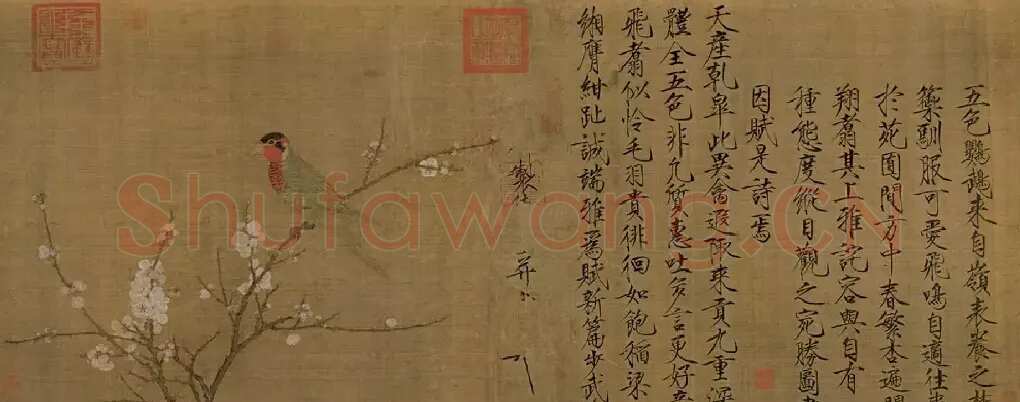 五色鸚鵡來自嶺表養之
籞馴服可愛飛鳴自適往
於苑囿間方中春繁杏遍
翔翥其上雅詫容與自有
種態度縱目觀之宛勝圖
因賦是詩焉
天產乹皐此異禽遐陬來貢九重深
體全五色非凡質惠吐多言更好音
飛翥似怜毛羽貴徘徊如飽稻粱
緗膺紺趾誠端雅爲賦新篇步武
製
并
Shufawang.CN